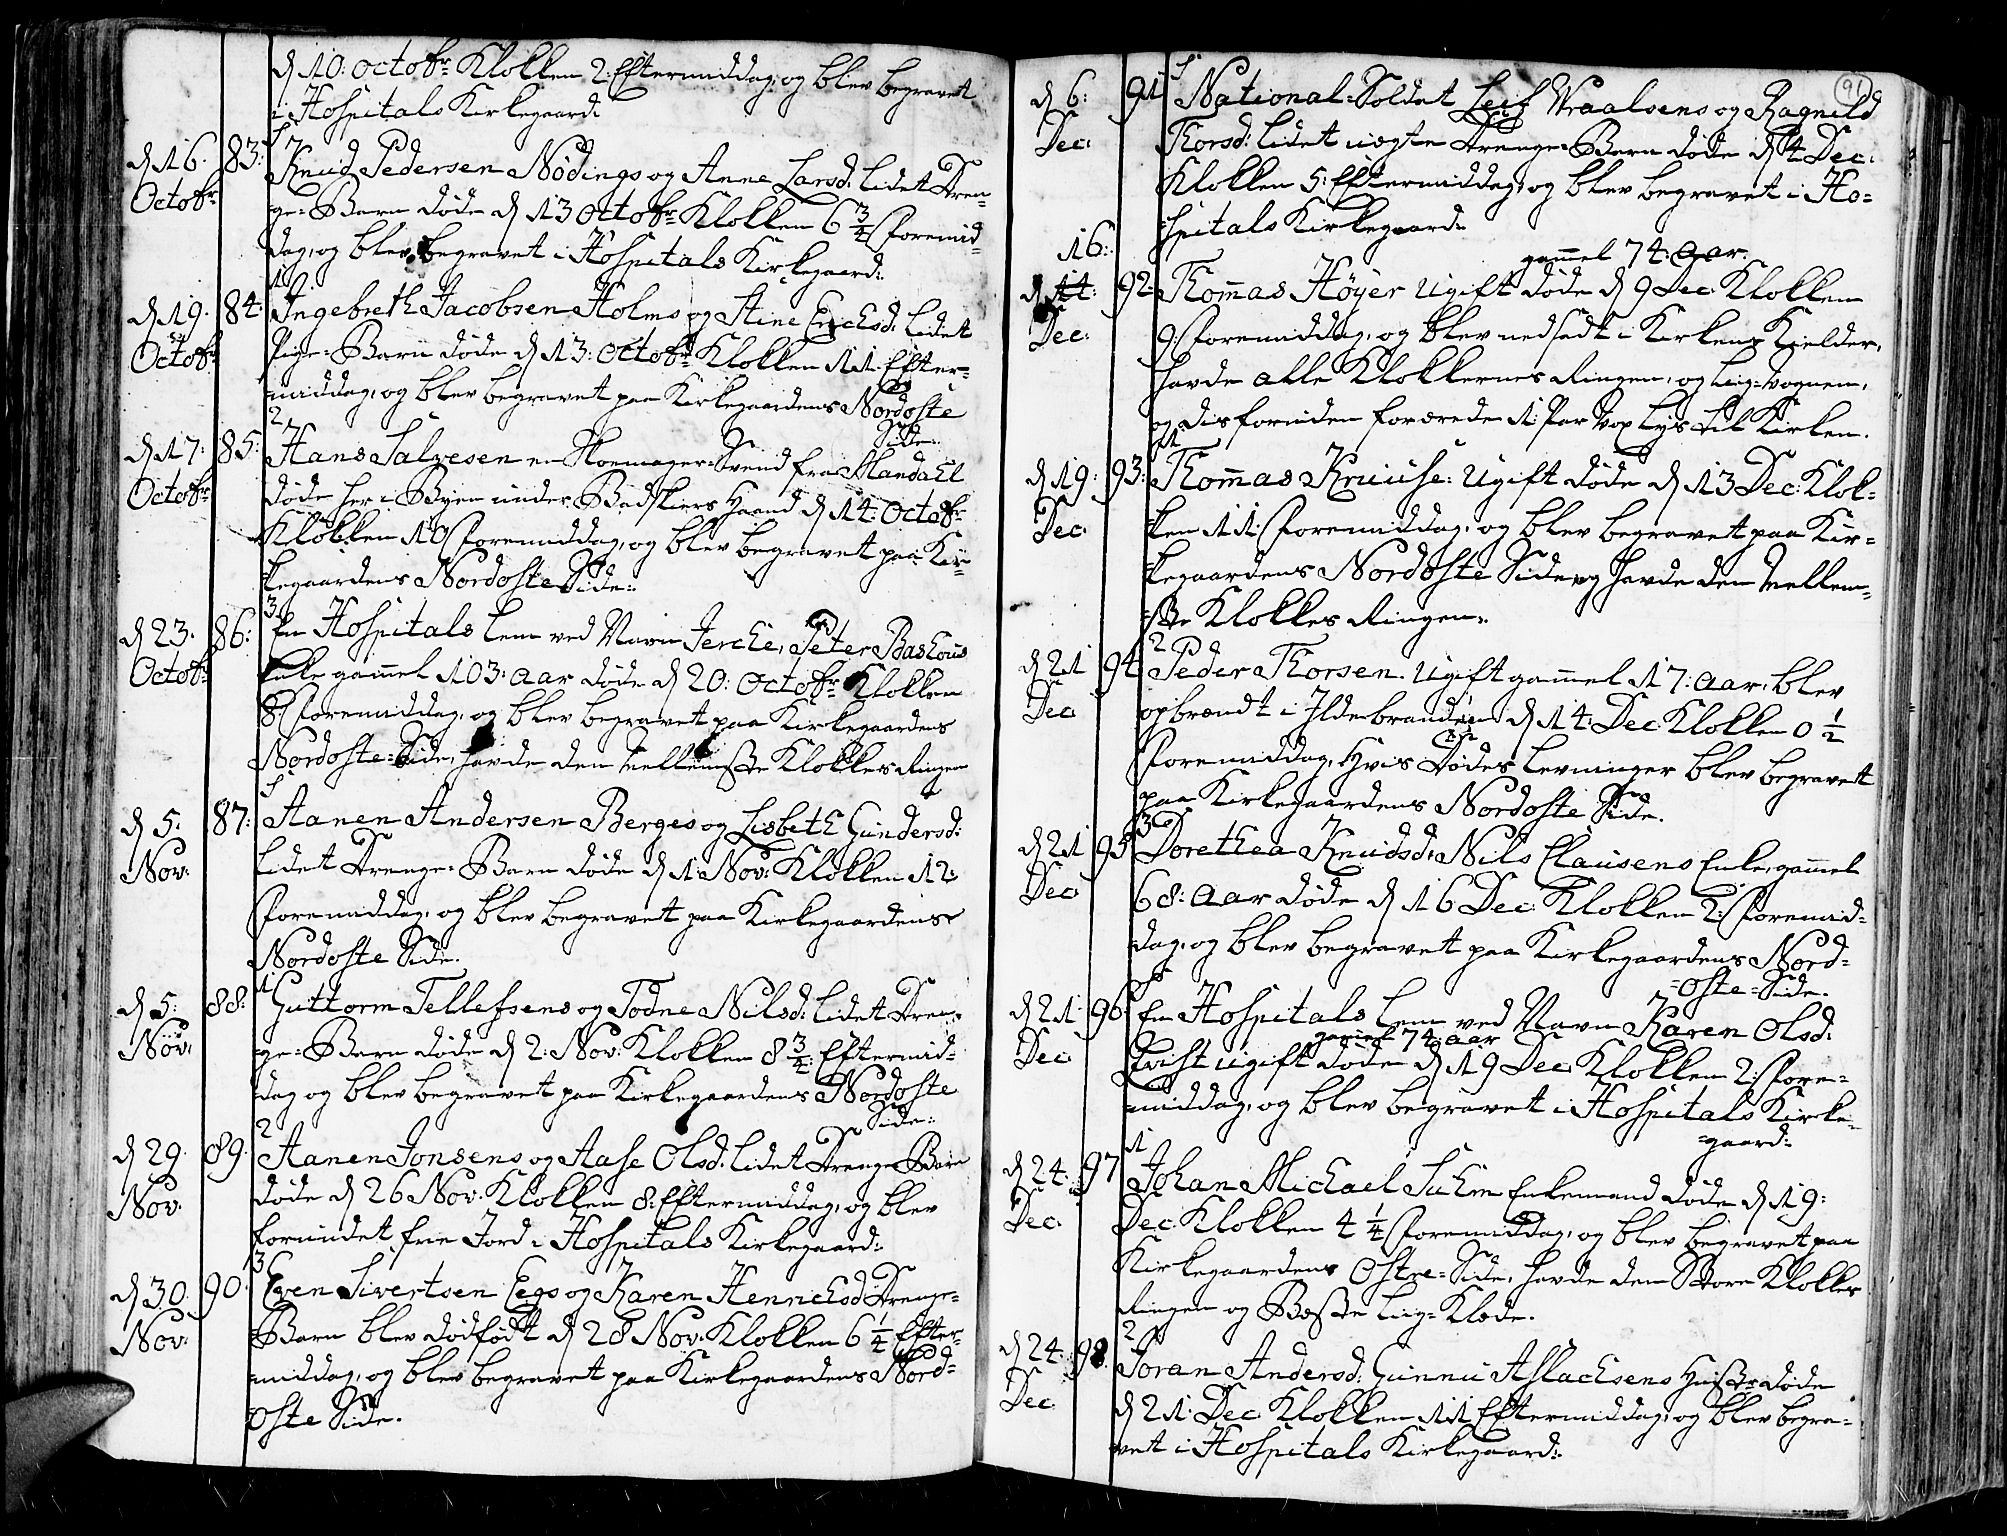 d 10: Octobr Klokken 2: Eftermiddag, og blev begravet
i Hospitals Kirkegaard:
1
d 16. Octobr 83: Knud Pedersen Nødings og Anne Larsd: lidet Dren-
ge-Barn døde d 13 Octobr Klokken 6 3/4 Formid-
dag, og blev begravet i Hospitals Kirkegaard:
1
d 19. Octobr 84: Ingebreth Jacobsen Holms og Stine Erichsd: lidet
Pige-Barn døde d 13: Octobr Klokken 11 Efter-
middag, og blev begravet paa Kirkegaardens Nordoste
Side:
2
d 17: Octobr 85: Hans Salvesen en Skomager-Svend fra Mandahl
døde her i Byen under Badskiers Haand d 14: Octobr
Klokken 10 Formiddag, og blev begravet paa Kir-
kegaardens Nordoste Side:
3
d 23. Octobr 86: En Hospitals Lem ved Navn Jerche, Peter
Enke gammel 103: aar døde d 20: Octobr Klokken
8 Formiddag, og blev begravet paa Kirkegaardens
Nordoste-Side, havde den Mellemste Klokkes Ringen
1
d 5: Nov: 87: Aanen Andersen Berges og Lisbeth Gundersd:
lidet Drenge-Barn døde d 1 Nov: Klokken 12:
Formiddag, og blev begravet paa Kirkegaardens
Nordoste Side.
1
d 5: Nov: 88: Guttorm Tellefsens og Todne Nilsd: lidet Dren-
ge-Barn døde d 2: Nov: Klokken 8 3/4: Eftermid-
dag og blev begravet paa Kirkegaardens Nordoste
Side:
2
d 29. Nov: 89. Aanen Jonsens og Aase Olsd: lidet Drenge Barn
døde d 26 Nov: Klokken 8: Eftermiddag, og blev
forundet frie Jord i Hospitals Kirkegaard:
3
d 30. Nov: 90. Even Sivertsen Eegs og Karen Henrichsd Drenge-
Barn blev dødfødt d 28 Nov: Klokken 6 1/4 Efter-
middag, og blev begravet paa Kirkegaardens Nord-
oste Side.
91
1
d 6: Dec: 91 National-Soldat Leif Wraalsens og Ragnild
Thorsd: lidet uægte Drenge-Barn døde d 4 Dec:
Klokken 5: Eftermiddag, og blev begravet i Ho-
spitals Kirkegaard:
gammel 74: aar.
d 16: Dec: 92: Thommas Høyer Ugift døde d 9 Dec: Klokken
9: Formiddag, og blev nedsadt i Kirkens Kielder,
havde alle Klokkernes Ringen, og Liig-Vognen,
og desforuden forærede 1: Par Vox Lys til Kirken.
1
d 19: Dec: 93: Thommas Kruuse: Ugift døde d 13 Dec: Klok-
ken 11: Formiddag, og blev begravet paa Kir-
kegaardens Nordoste Side, og havde den Mellem-
ste Klokkes Ringen:
2
d 21 Dec 94 Peder Thorsen. Ugift gammel 17: aar, blev
opbrændt i Ildebranden d 14: Dec: Klokken 0 1/2
Formiddag, Hvis Dødes Levninger blev begravet
paa Kirkegaardens Nordoste Side.
3
d 21 Dec: 95 Dorethea Knudsd: Nils Clausens Enke, gammel
68: aar døde d 16 Dec: Klokken 2: Formid-
dag, og blev begravet paa Kirkegaardens Nord-
-oste-Side.
d 21: Dec: 96 En Hospitals Lem ved Navn Karen Olsd:
gamel 74: aar
Qvist Ugift døde d 19 Dec: Klokken 2: For-
middag, og blev begravet i Hospitals Kirke-
-gaard:
1
d 24. Dec: 97 Johan Michael Suhm Enkemand døde d 19:
Dec: Klokken 4 1/4 Formiddag, og blev begravet paa
Kirkegaardens Ostre-Side, havde den Store Klokkes
Ringen og Beste Liig-Klæde.
2
d 24. Dec: 98. Joran Andersd: Gunnu Aslachsens Hustr døde
d 21: Dec: Klokken 11 Eftermiddag, og blev begra-
vet i Hospitals Kirkegaard: